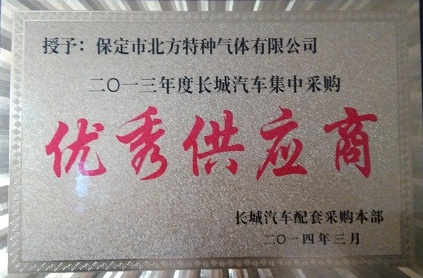 授予：保定市北方特种气体有限公司
二〇一三年度长城汽车集中采购
优秀供应商
长城汽车配套采购本部
二〇一四年三月